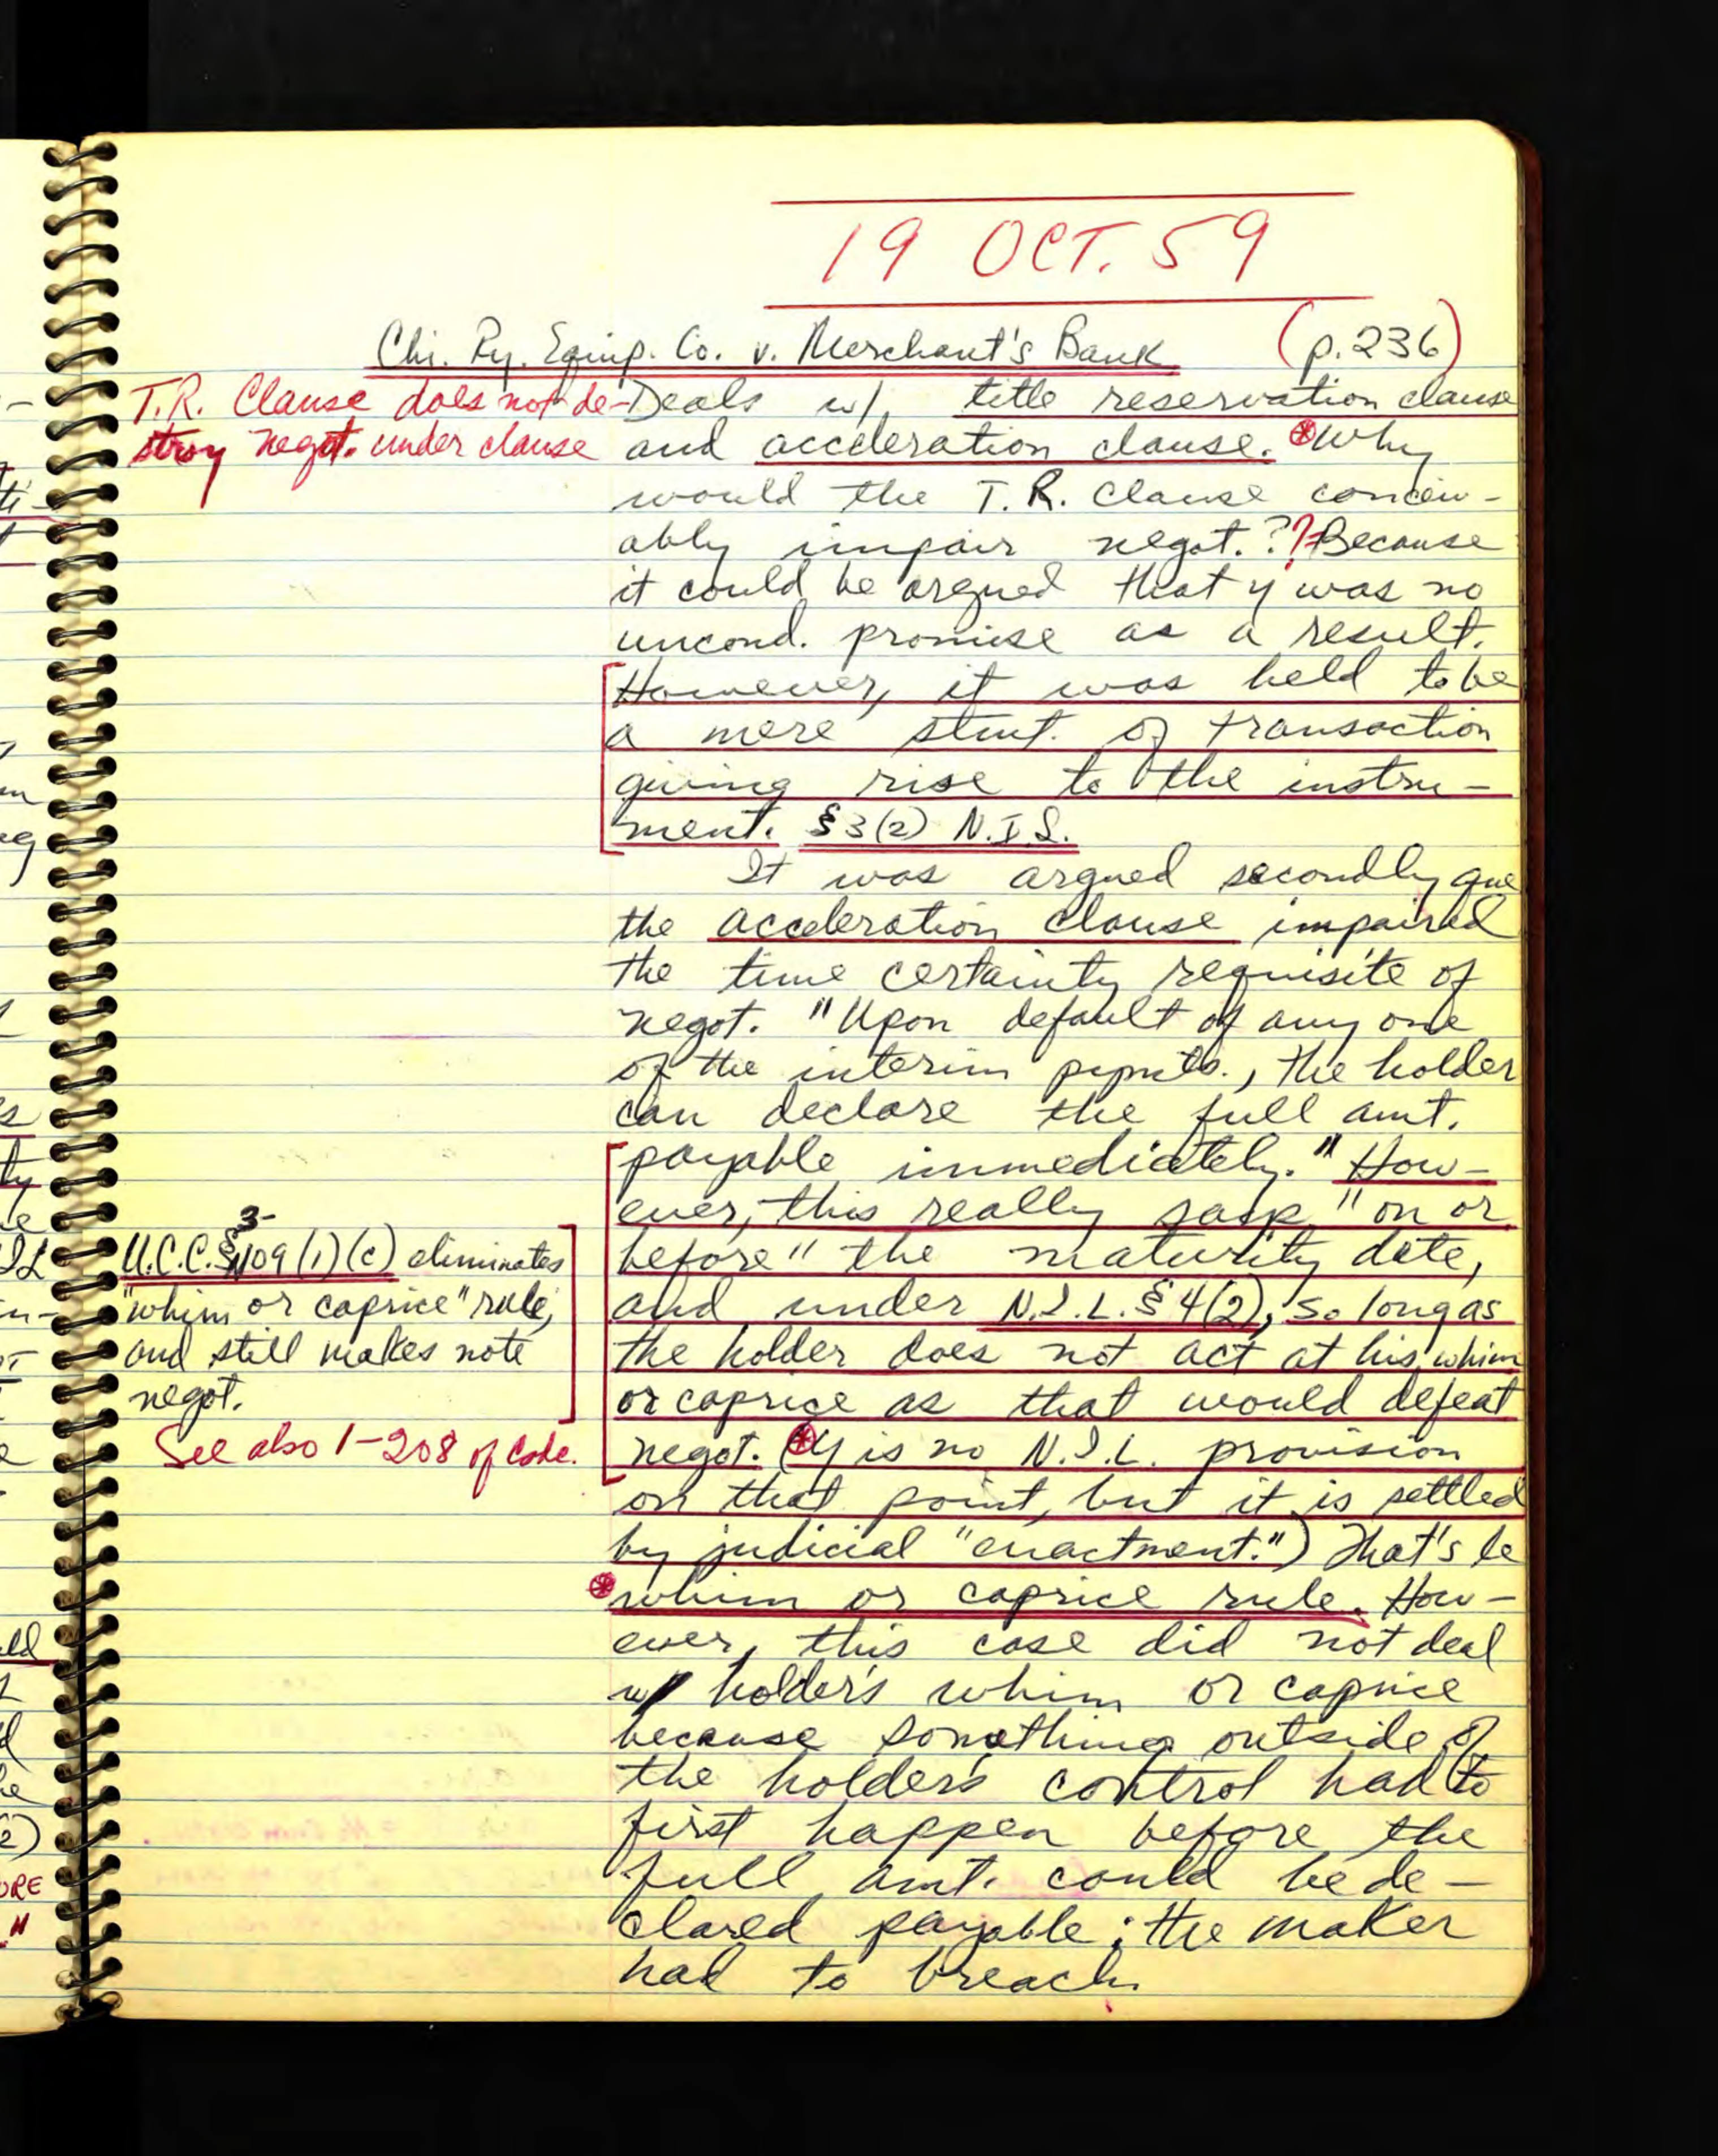 19 OCT. 59
Chi. Ry. Equip. Co. v. Merchant's Bank (p. 236)
T.R. Clause does not de-
stroy negot. under clause
Deals w/ title reservation clause
and acceleration clause. Why
would the T.R. clause conceiv-
ably impair negot.?? Because
it could be argued that y was no
uncond. promise as a result.
However, it was held to be
a mere stmt. of transaction
giving rise to the instru-
ment. §3(2) N.I.L.
It was argued secondly que
the acceleration clause impaired
the time certainty requisite of
negot. "Upon default of any one
of the interim pymts., the holder
can declare the full amt.
payable immediately." How-
ever, this really says "on or
before" the maturity date,
and under N.I.L. §4(2), so long as
the holder does not act at his whim
or caprice as that would defeat
negot. (Y is no N.I.L. provision
on that point, but it is settled
by judicial "enactment.") That's le
whim or caprice rule. How-
ever, this case did not deal
w/ holder's whim or caprice
because something outside of
the holder's control had to
first happen before the
full amt. could be de-
clared payable; the maker
had to breach.
U.C.C. §3-109(1)(c) eliminates
"whim or caprice" rule,
and still makes note
negot.
See also 1-208 of Code.